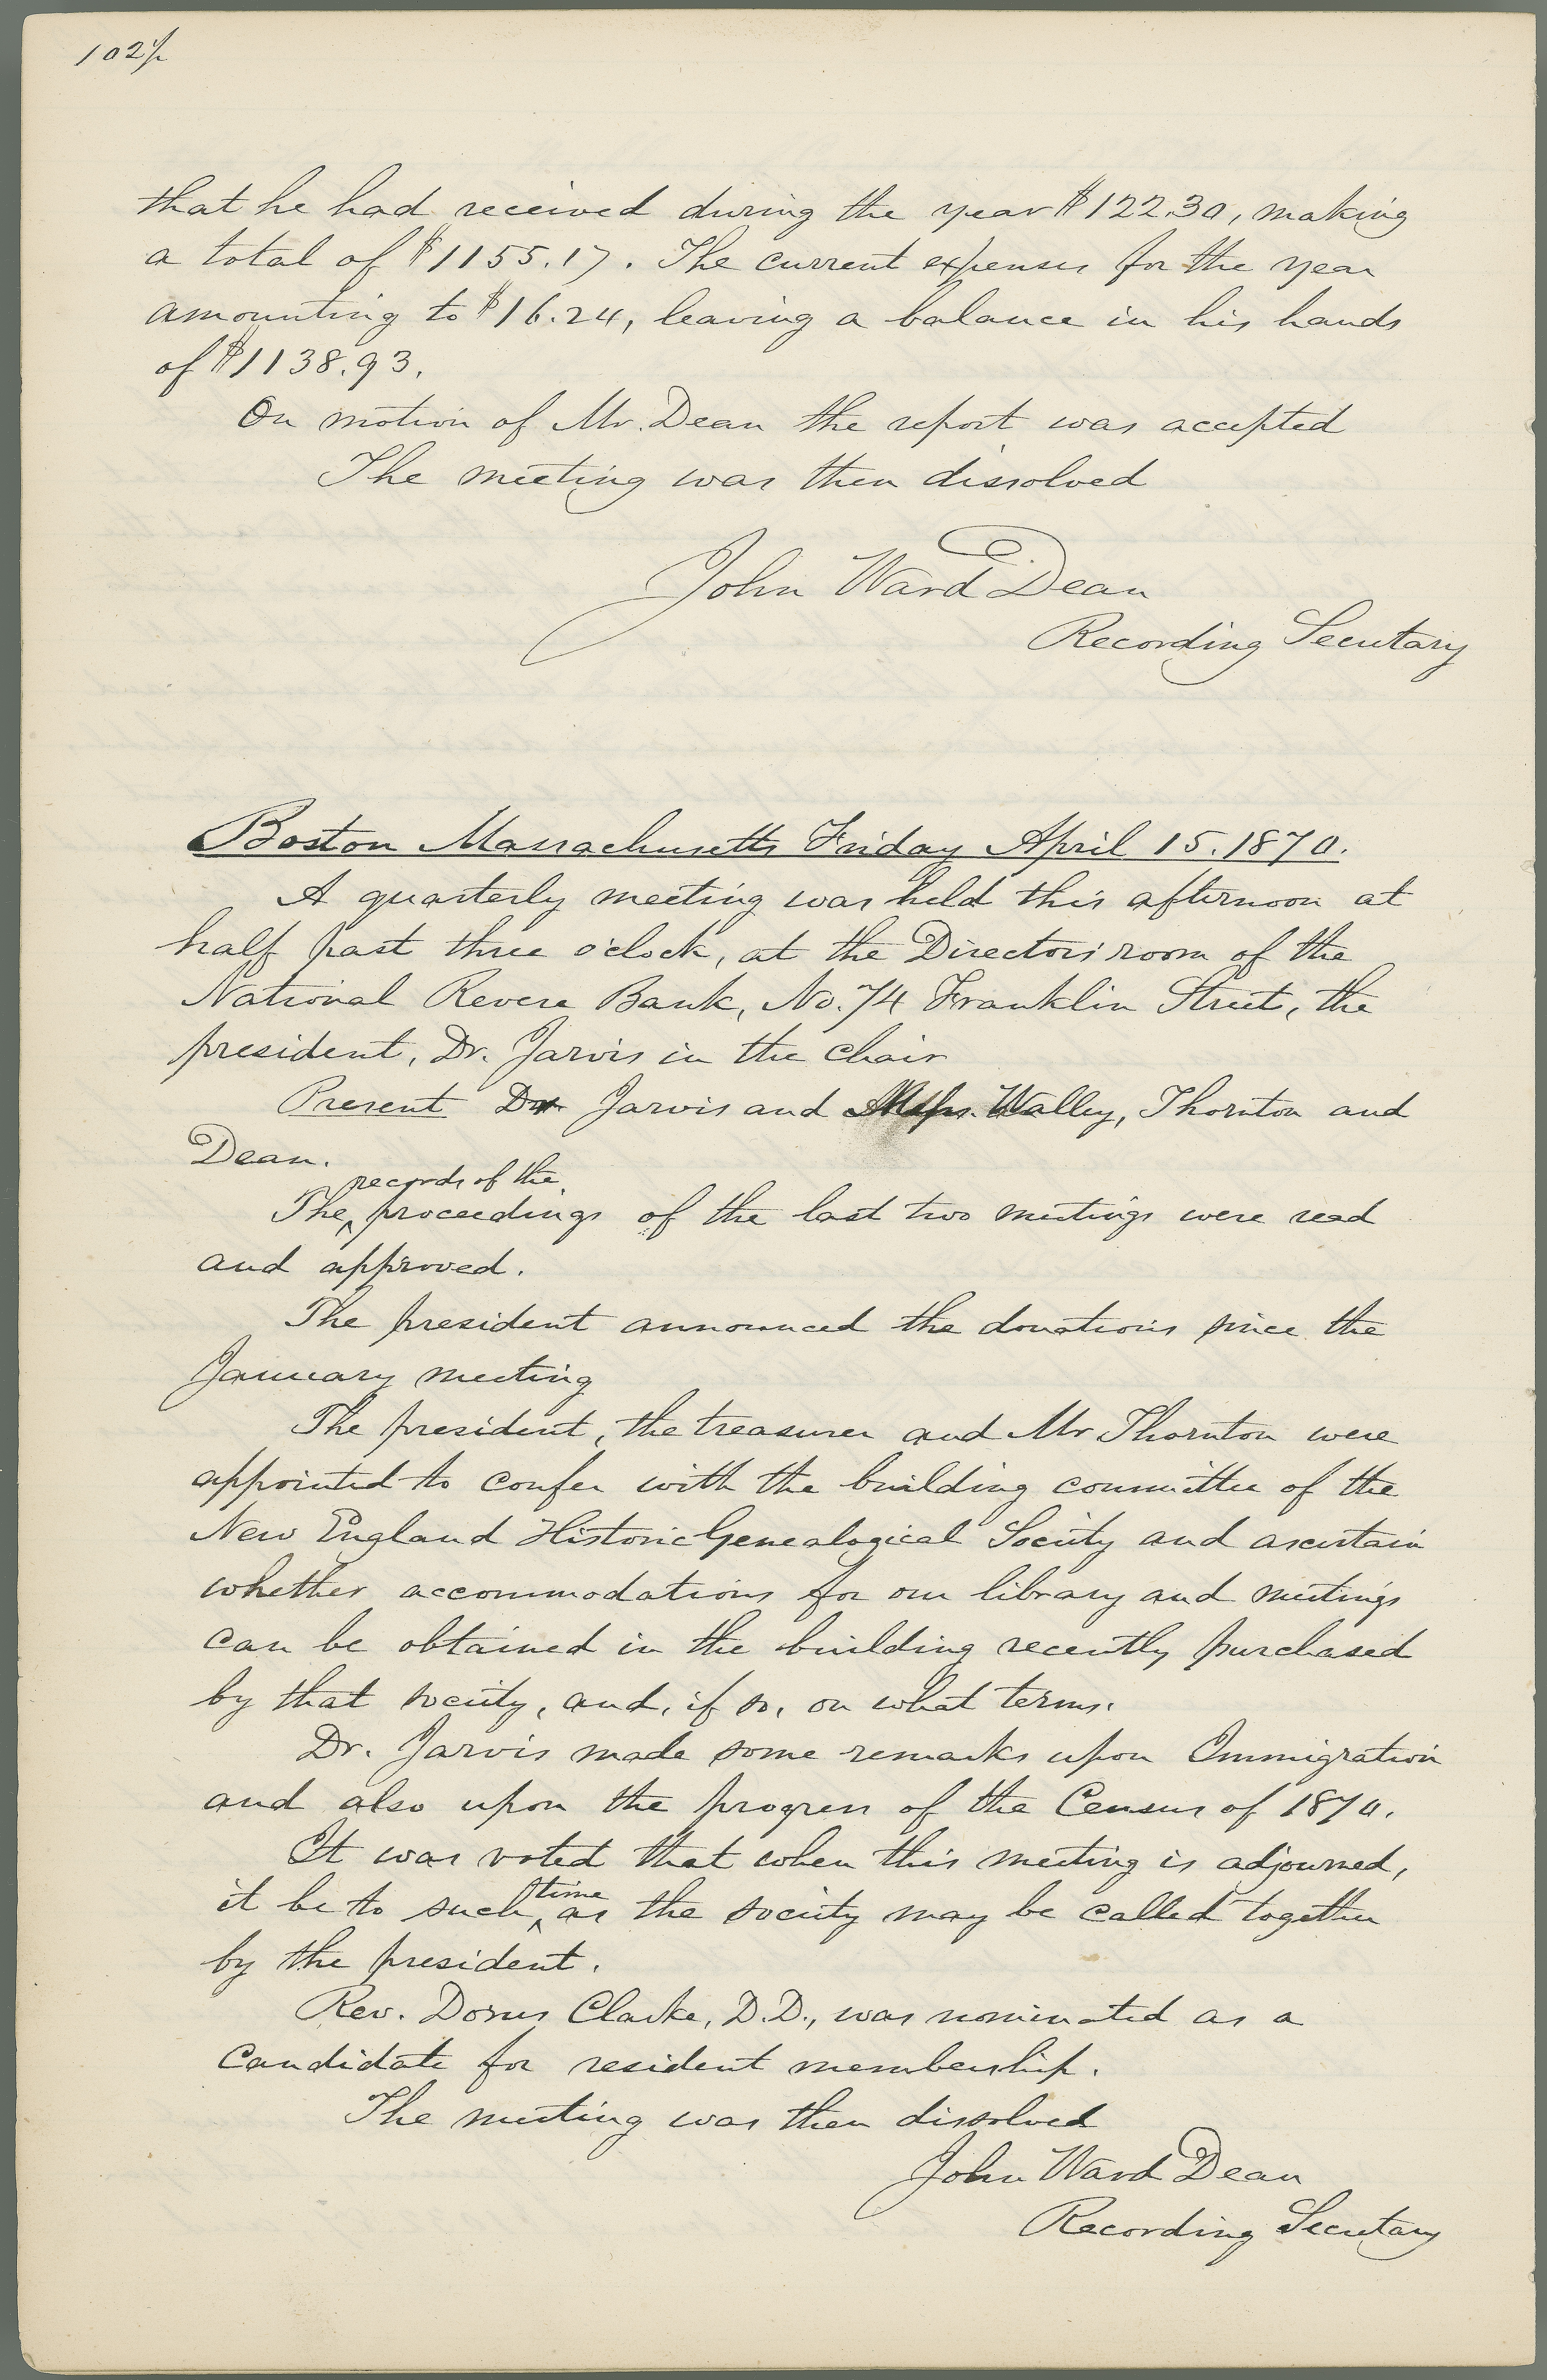 102½
that he had received during the year $122.30, making
a total of $1155.17. The current expenses for the year
amounting to $16.24, leaving a balance in his hands
of $1138.93.
On motion of Mr. Dean the report was accepted
The meeting was then dissolved
John Ward Dean
Recording Secretary
Boston Massachusetts Friday April 15. 1870.
A quarterly meeting was held this afternoon at
half past three o'clock, at the Directors' room of the
National Revere Bank, No. 74 Franklin Street, the
president, Dr. Jarvis in the chair
Present Dr Jarvis and Messrs. Walley, Thornton and
Dean.
records of the
The ‸ proceedings of the last two meetings were read
and approved.
The president announced the donations since the
January meeting
The president, the treasurer and Mr Thornton were
appointed to confer with the building committee of the
New England Historic Genealogical Society and ascertain
whether accommodations for our library and meetings
can be obtained in the building recently purchased
by that society, and, if so, on what terms.
Dr. Jarvis made some remarks upon Immigration
and also upon the progress of the Census of 1870.
It was voted that when this meeting is adjourned,
time
it be to such ‸ as the society may be called together
by the president.
Rev. Dorus Clarke, D.D., was nominated as a
candidate for resident membership.
The meeting was then dissolved
John Ward Dean
Recording Secretary